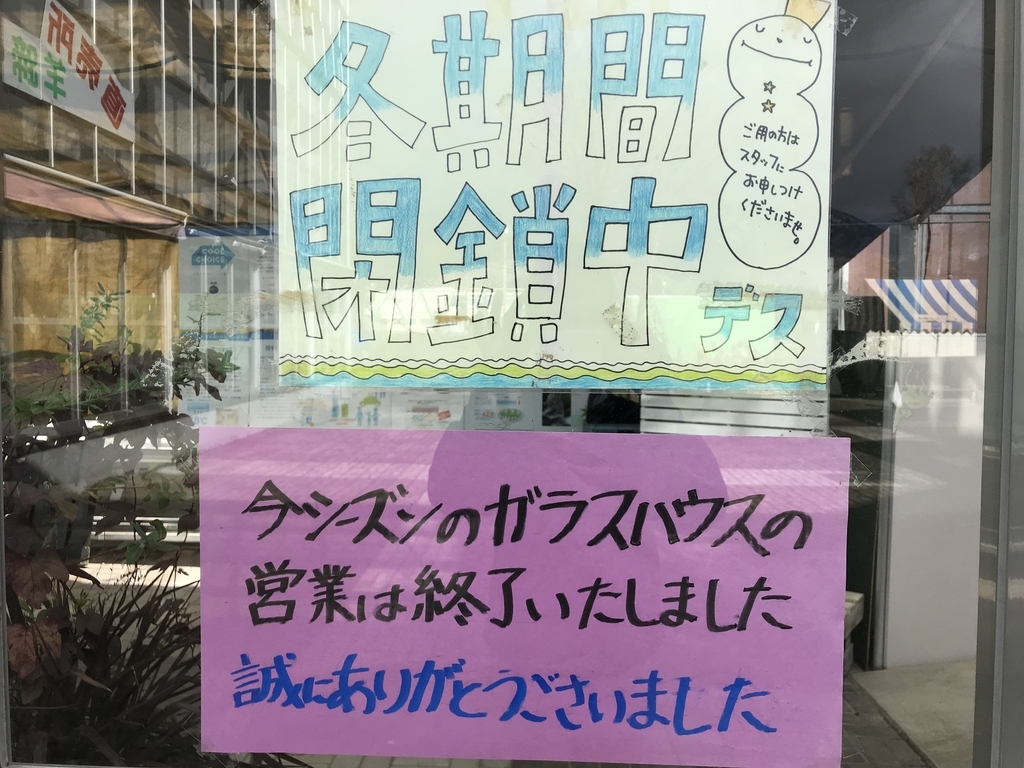 冬期間
閉鎖中
デス
ご用の方は
スタッフに
お申しつけ
くださいませ。
今シーズンのガラスハウスの
営業は終了いたしました
誠にありがとうございました
直売所
COOL
CHOICE